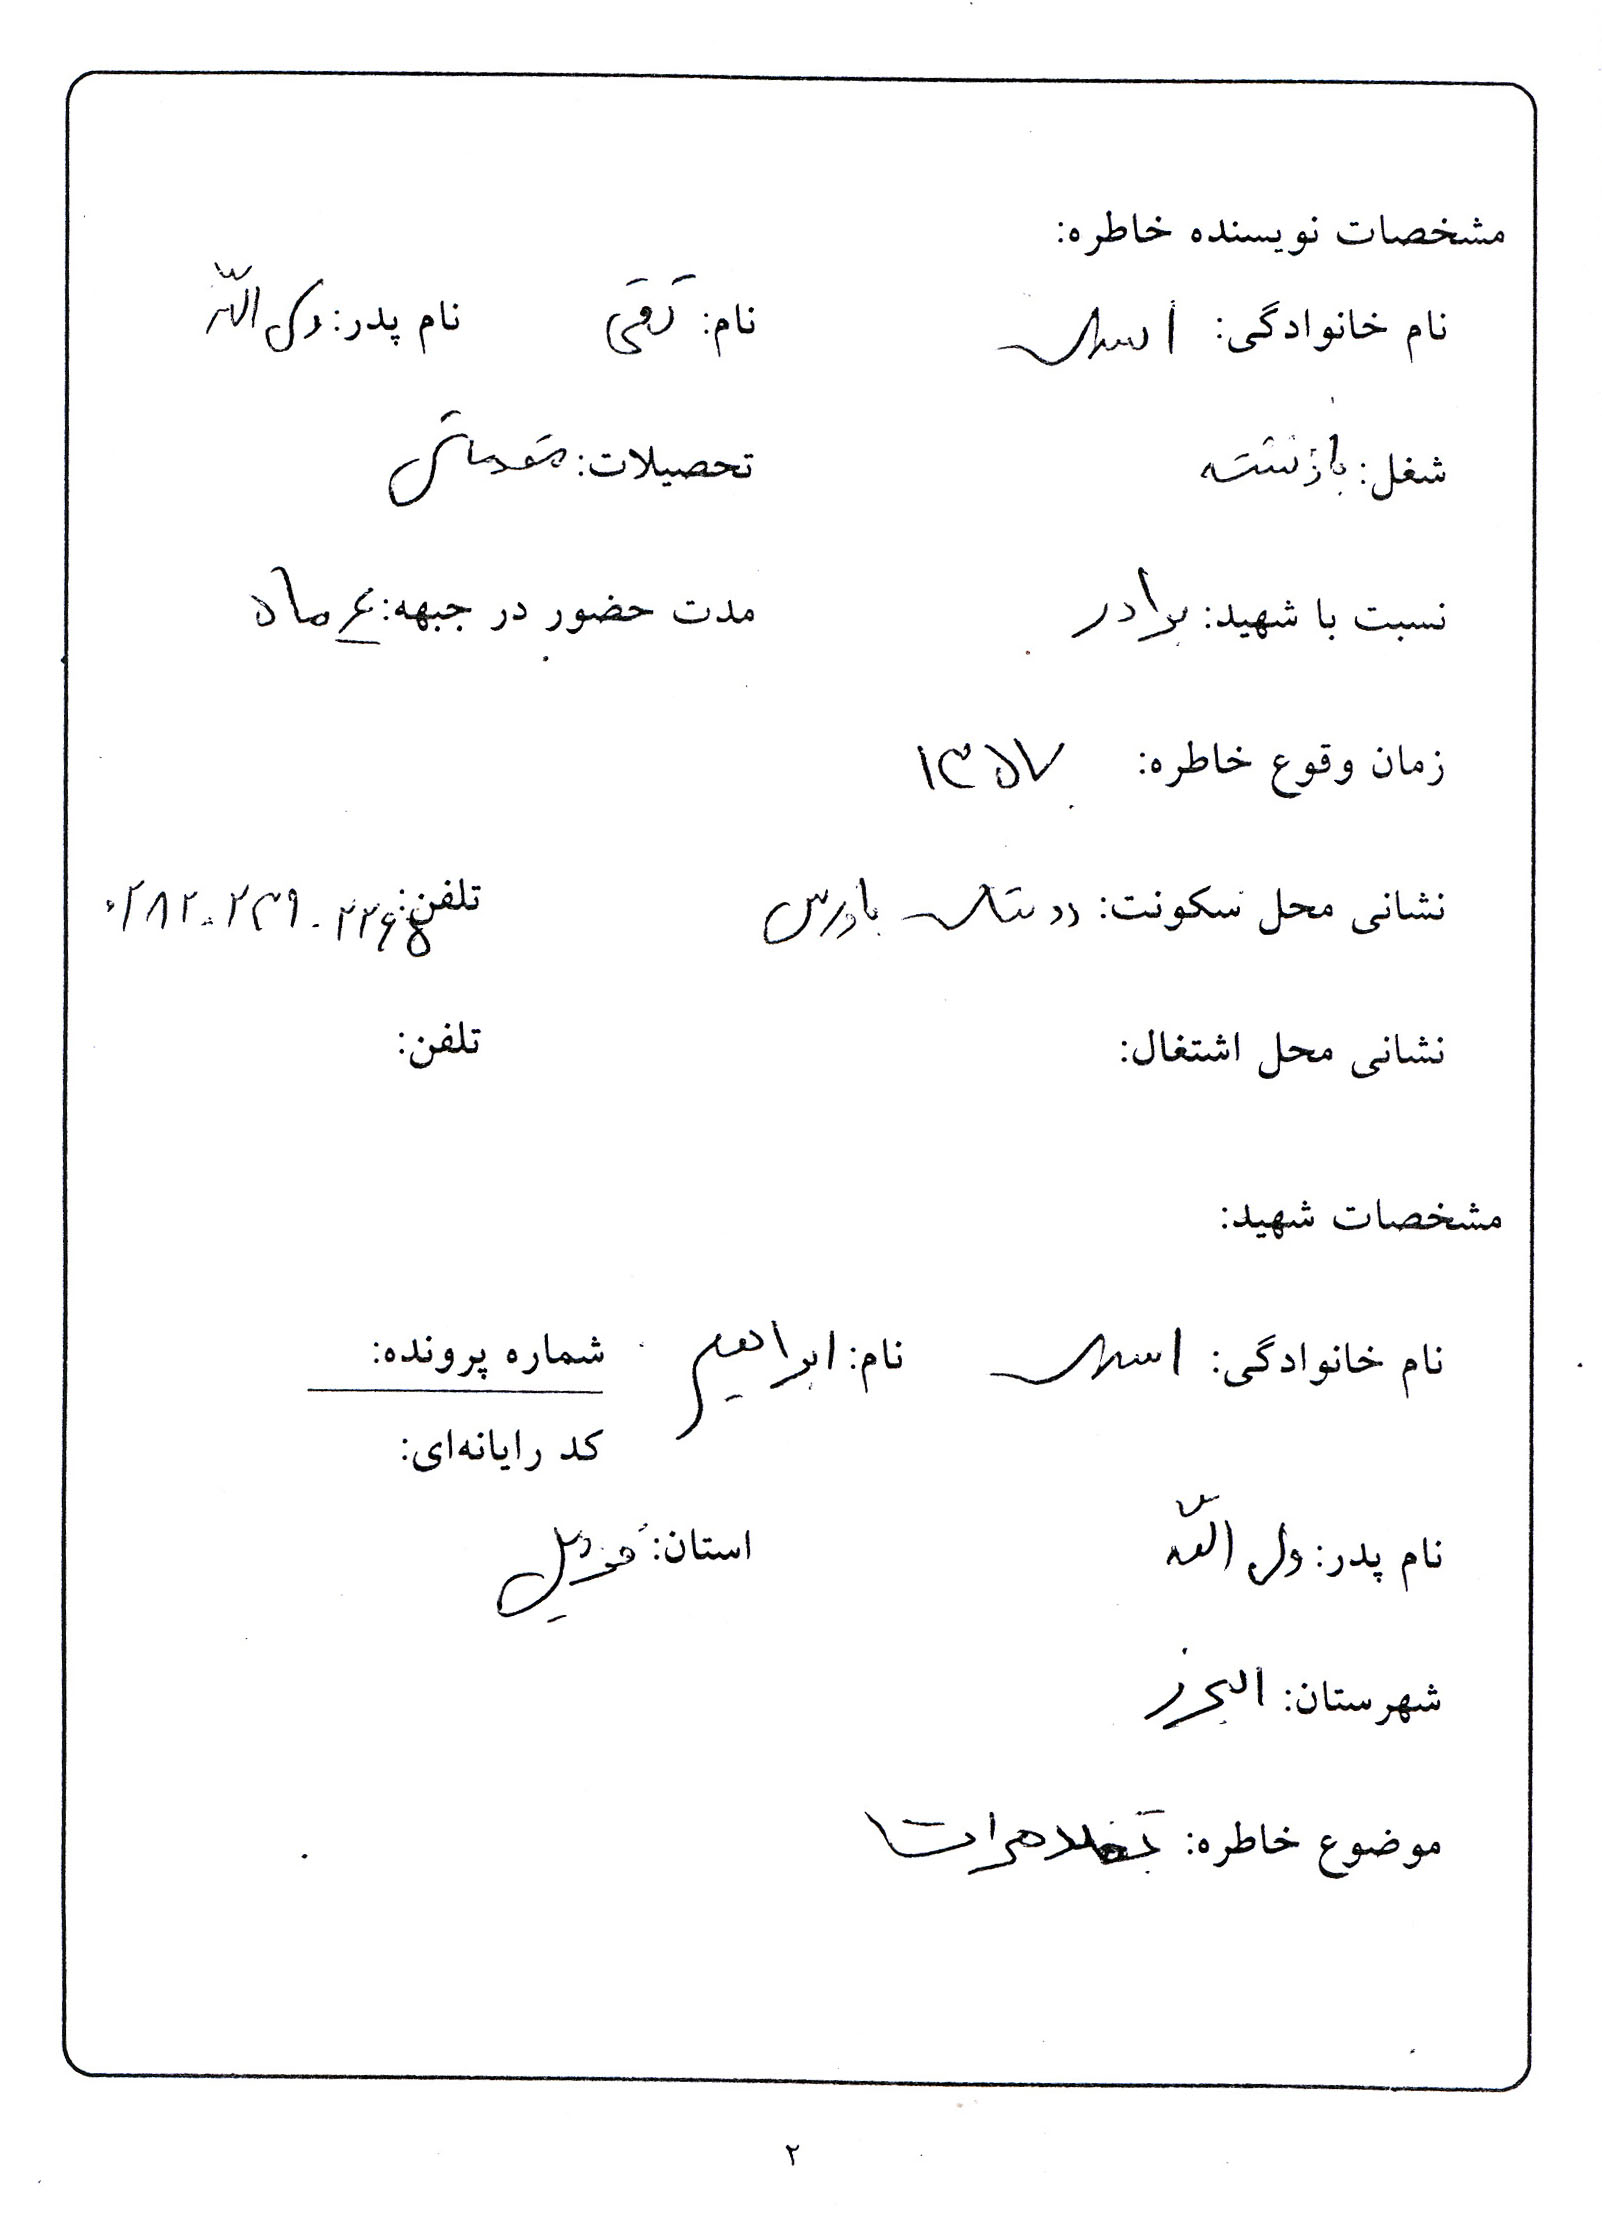 مشخصات نویسنده خاطره:
نام خانوادگی: اسدی نام: تقی نام پدر: ولی الله
شغل: بازنشسته تحصیلات: مقدماتی
نسبت با شهید: برادر مدت حضور در جبهه: ۶ ماه
زمان وقوع خاطره: ۱۳۵۷
نشانی محل سکونت: تلفن: ۰۲۸۲۰۲۳۹۰۲۲۶۵
نشانی محل اشتغال: تلفن:
مشخصات شهید:
نام خانوادگی: اسدی نام: ابراهیم شماره پرونده:
کد رایانه‌ای:
نام پدر: ولی الله استان: قزوین
شهرستان: البرز
موضوع خاطره: تظاهرات
۲